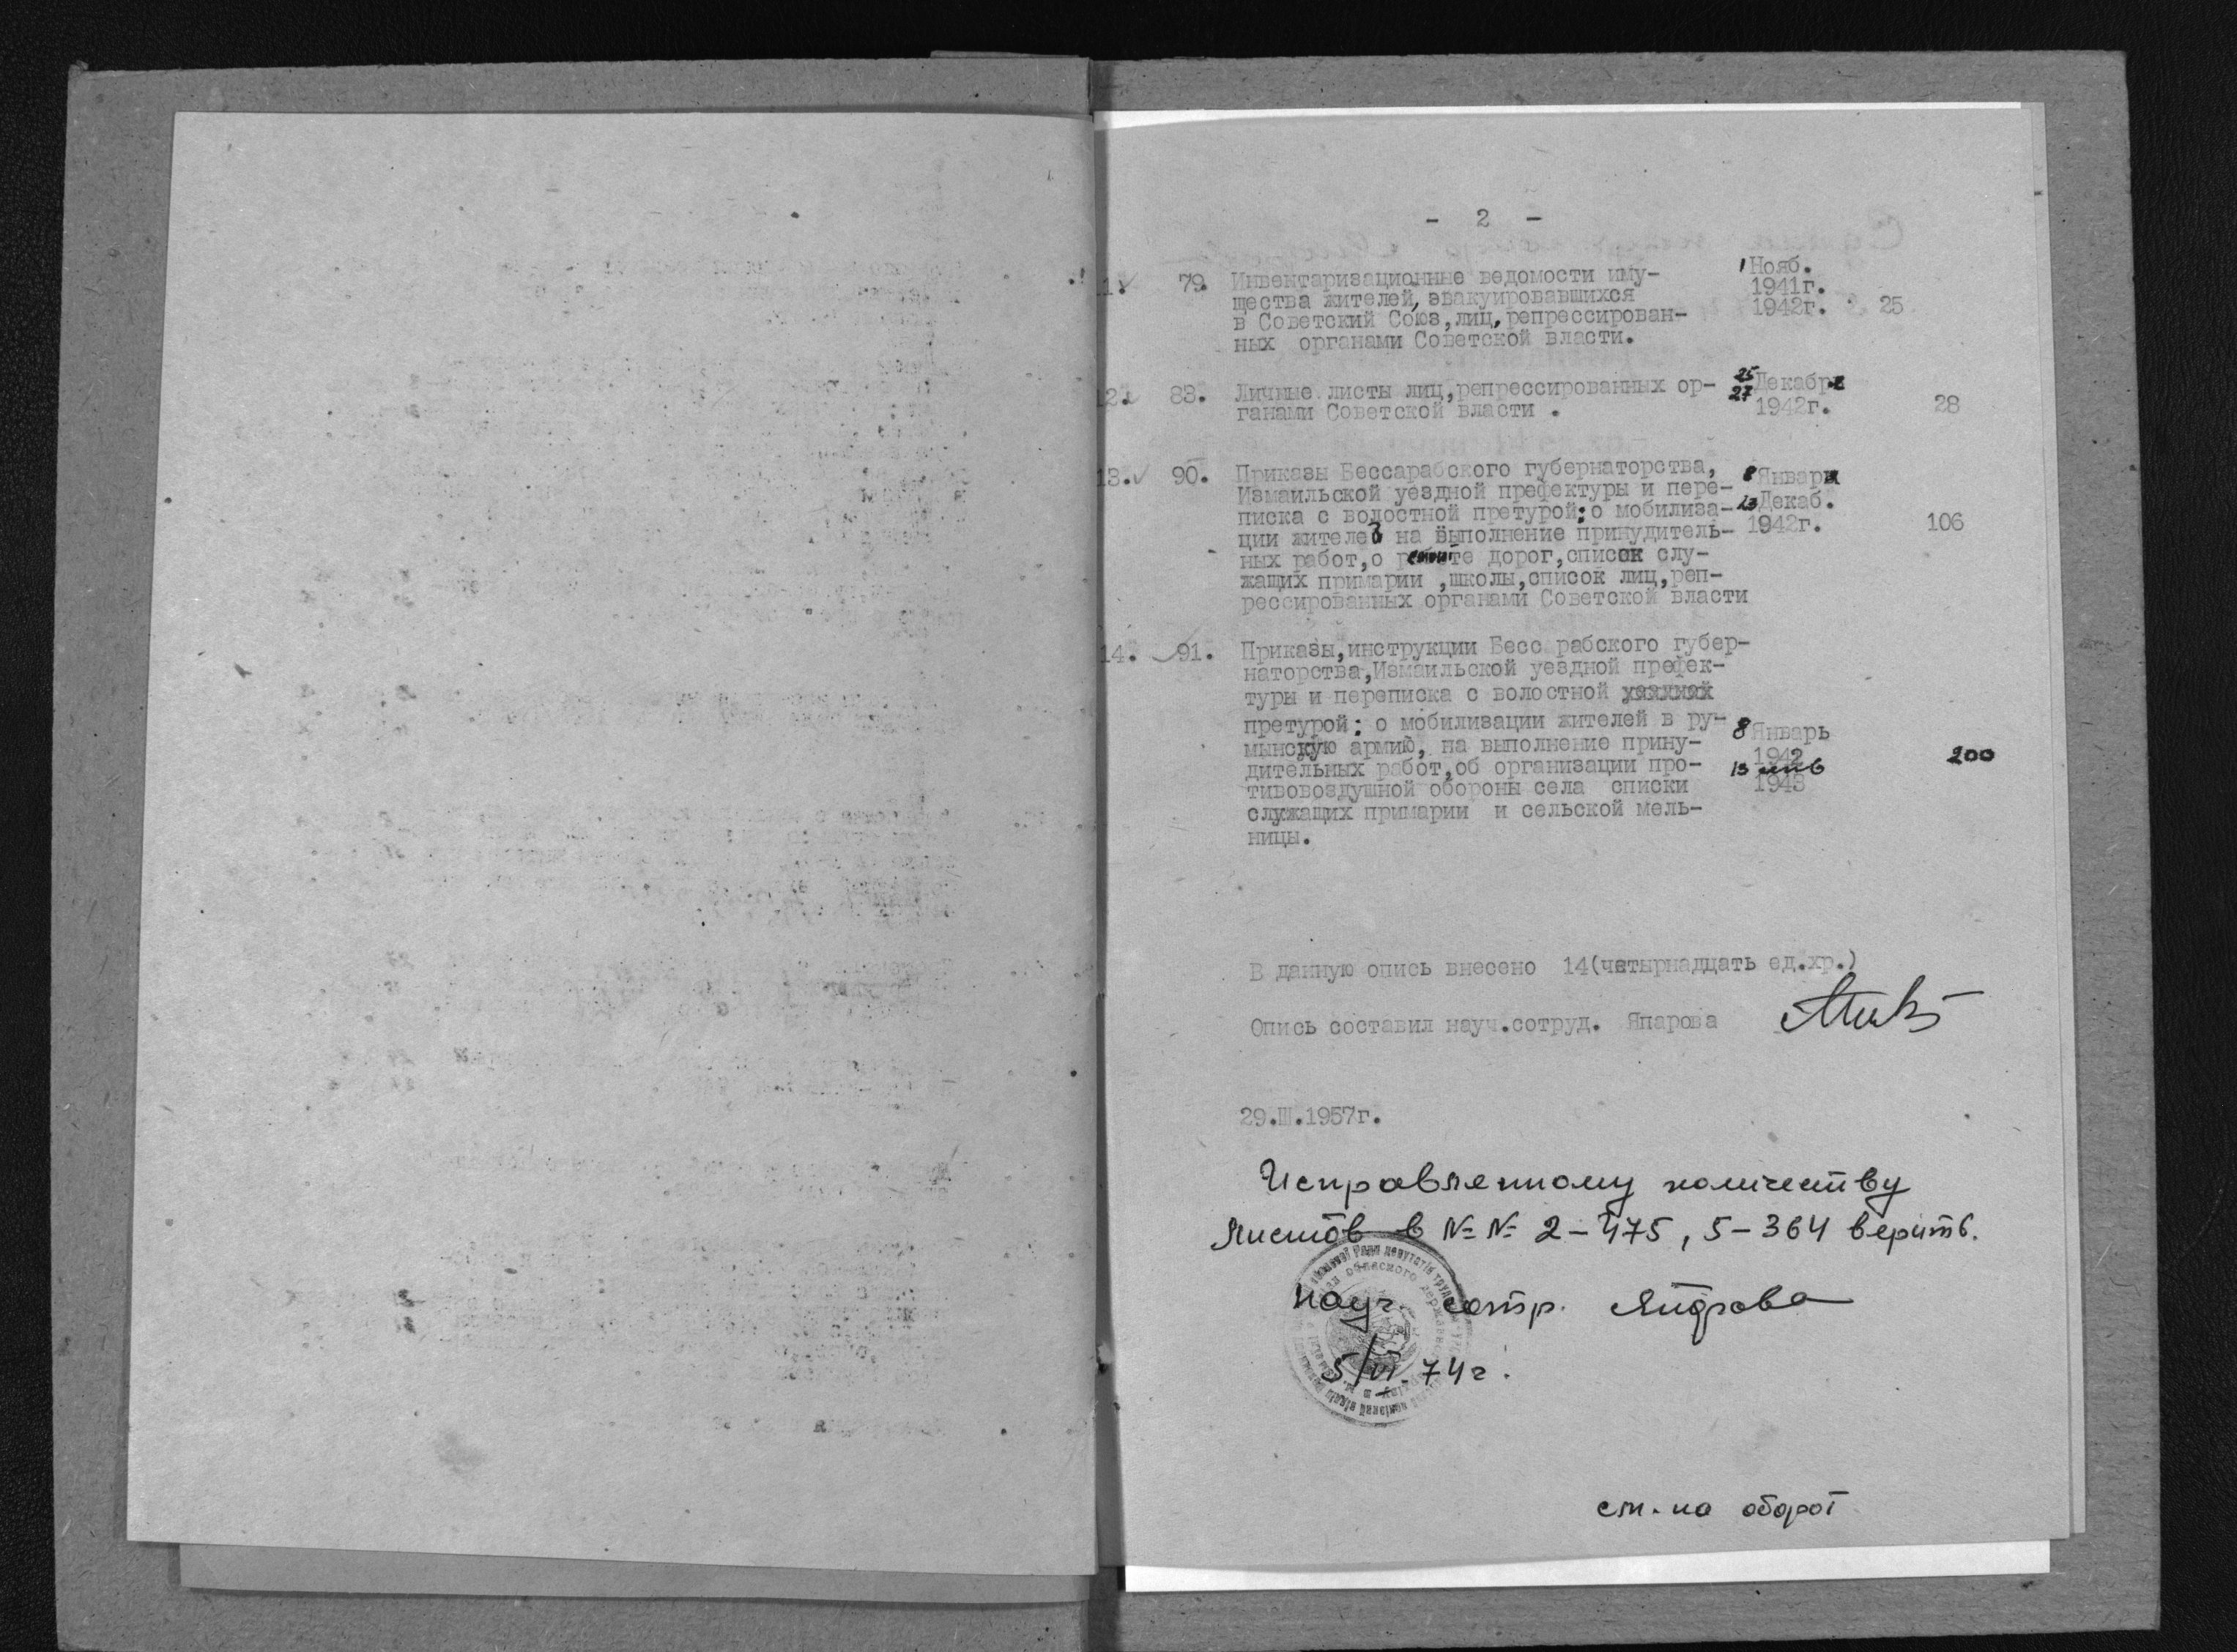 - 2 -
1. 79. Инвентаризационные ведомости иму- 1 Нояб.
щества жителей, эвакуировавшихся 1941г.
в Советский Союз, лиц, репрессирован- 1942г. 25
ных органами Советской власти.
2. 83. Личные листы лиц, репрессированных ор- 25 Декабря
27
ганами Советской власти . 1942г. 28
13. 90. Приказы Бессарабского губернаторства, 8 Января
Измаильской уездной префектуры и пере-
писка с волостной претурой: о мобилиза- 23 Декаб.
ции жителей на выполнение принудитель- 1942г. 106
ных работ, о ремонте дорог, список слу-
жащих примарии , школы, список лиц, реп-
рессированных органами Советской власти
14. 91. Приказы, инструкции Бесс рабского губер-
наторства, Измаильской уездной префек-
туры и переписка с волостной
претурой: о мобилизации жителей в ру- 8 Январь
мынскую армию, на выполнение прину- 1942
дительных работ, об организации про- 13 200
тивовоздушной обороны села списки 1943
служащих примарии и сельской мель-
ницы.
В данную опись внесено 14(четырнадцать ед.хр.)
Опись составил науч.сотруд. Япарова
29.III.1957г.
Исправленному количеству
листов в № № 2-475, 5-364 верить.
науч. сотр.
5/VI.74г.
см. на оборот